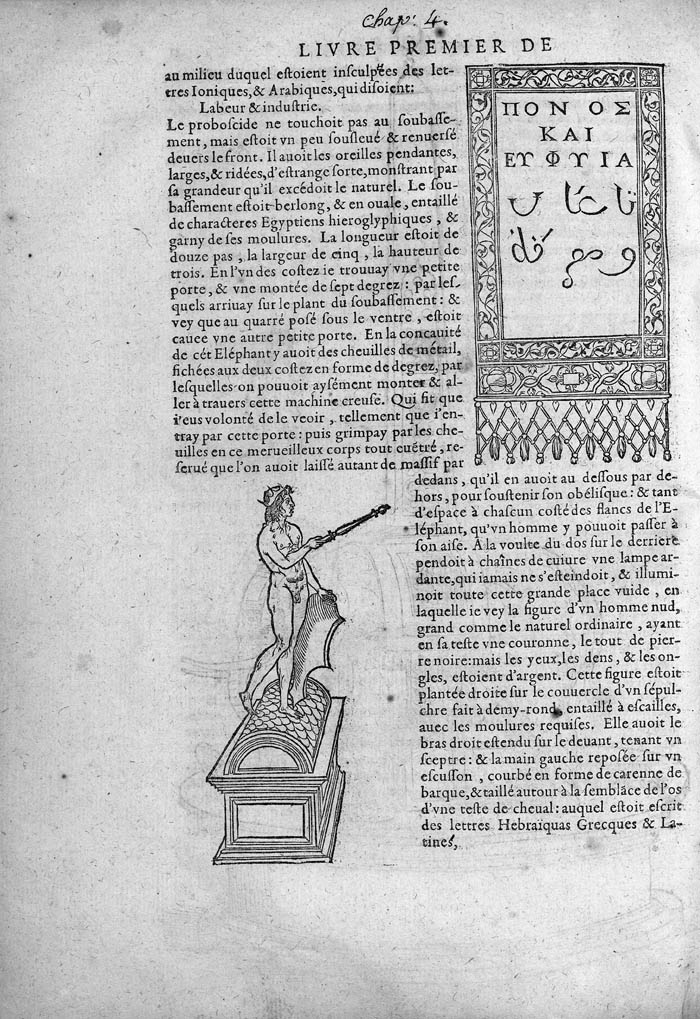 Chap: 4.
LIVRE PREMIER DE
au milieu duquel eſtoient inſculpées des let-
tres Ioniques, & Arabiques, qui diſoient:
Labeur & induſtrie.
Le proboſcide ne touchoit pas au ſoubaſſe-
ment, mais eſtoit vn peu ſouſleué & renuerſé
deuers le front. Il auoit les oreilles pendantes,
larges, & ridées, d'eſtrange ſorte, monſtrant par
ſa grandeur qu'il excédoit le naturel. Le ſou-
baſſement eſtoit berlong, & en ouale, entaillé
de characteres Egyptiens hieroglyphiques, &
garny de ſes moulures. La longueur eſtoit de
douze pas, la largeur de cinq, la hauteur de
trois. En l'vn des coſtez ie trouuay vne petite
porte, & vne montée de ſept degrez: par leſ-
quels arriuay ſur le plant du ſoubaſſement: &
vey que au quarré poſé ſous le ventre, eſtoit
cauee vne autre petite porte. En la concauité
de cét Eléphant y auoit des cheuilles de métail,
fichées aux deux coſtez en forme de degrez, par
leſquelles on pouuoit aysément monter & al-
ler à trauers cette machine creuſe. Qui fit que
i'eus volonté de le veoir, tellement que i'en-
tray par cette porte: puis grimpay par les che-
uilles en ce merueilleux corps tout euétré, re-
ſerué que l'on auoit laiſſé autant de maſſif par
ΠΟΝΟΣ
ΚΑΙ
ΕΥΦΥΙΑ
dedans, qu'il en auoit au deſſous par de-
hors, pour ſouſtenir ſon obéliſque: & tant
d'eſpace à chaſcun coſté des flancs de l'E-
léphant, qu'vn homme y pouuoit paſſer à
ſon aiſe. A la voulte du dos ſur le derriere
pendoit à chaînes de cuiure vne lampe ar-
dante, qui iamais ne s'eſteindoit, & illumi-
noit toute cette grande place vuide, en
laquelle ie vey la figure d'vn homme nud,
grand comme le naturel ordinaire, ayant
en ſa teſte vne couronne, le tout de pier-
re noire: mais les yeux, les dens, & les on-
gles, eſtoient d'argent. Cette figure eſtoit
plantée droite ſur le couuercle d'vn ſépul-
chre fait à demy-rond, entaillé à eſcailles,
auec les moulures requiſes. Elle auoit le
bras droit eſtendu ſur le deuant, tenant vn
ſceptre: & la main gauche repoſée ſur vn
eſcuſſon, courbé en forme de carenne de
barque, & taillé autour à la ſemblãce de l'os
d'vne teſte de cheual: auquel eſtoit eſcrit
des lettres Hebraïquas Grecques & La-
tines,